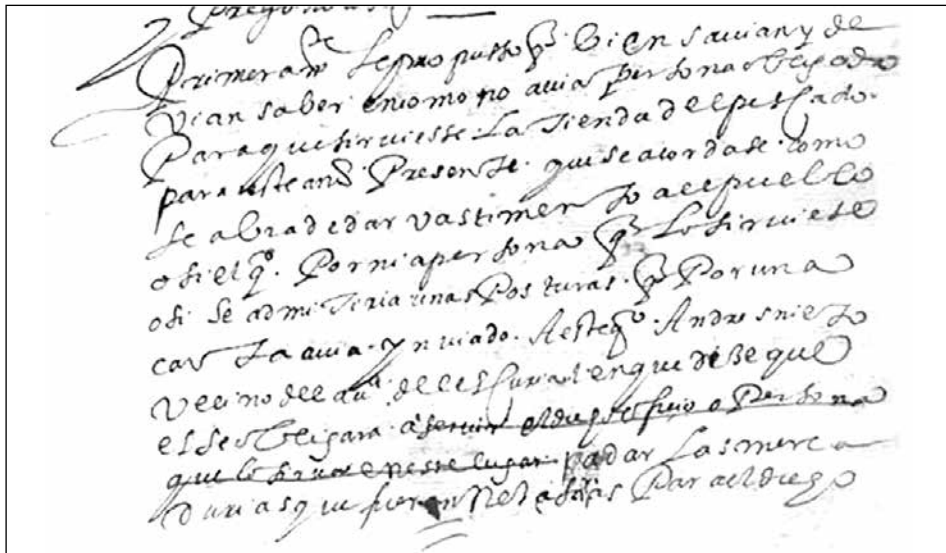 Primeram^te se propusso q̃ bien savian y de
vian saber en como no avia persona obligada
Para que sirviesse La Tienda del pescado.
para este anº Presente. que se acordase. como
se abia de dar vastimento a el pueblo
o si el qº. Pornia persona q̃ Lo sirviese
o si se admitiria unas Posturas. q̃ Por una
carta avia. ynviado. A este qº. Andres nieto
Vecino de la vª. de el escurial en que dise que
el se obligara a servir el dho officio o Persona
que lo sirva en esse lugar. pa dar Las merca
durias que fueren nesesarias Para el dicho